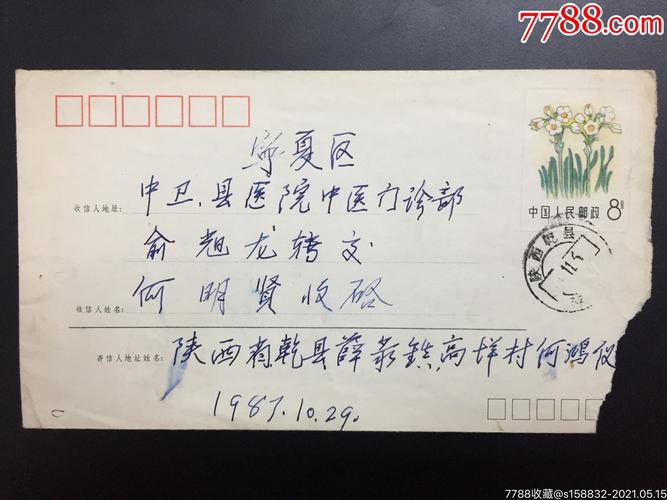 7788.com
中国人民邮政 8分
陕西乾县
宁夏区
收信人地址:
中卫.县医院中医门诊部
俞旭龙转交
收信人姓名:
何明贤收启
寄信人地址姓名:
陕西省乾县薛录镇高垟村何鸿仪
1987.10.29.
7788收藏@s158832-2021.05.15